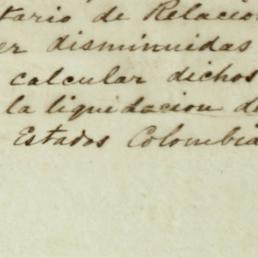 tario de Relacio
er disminuidas
calcular dichos
la liquidacion de
Estados Colombia